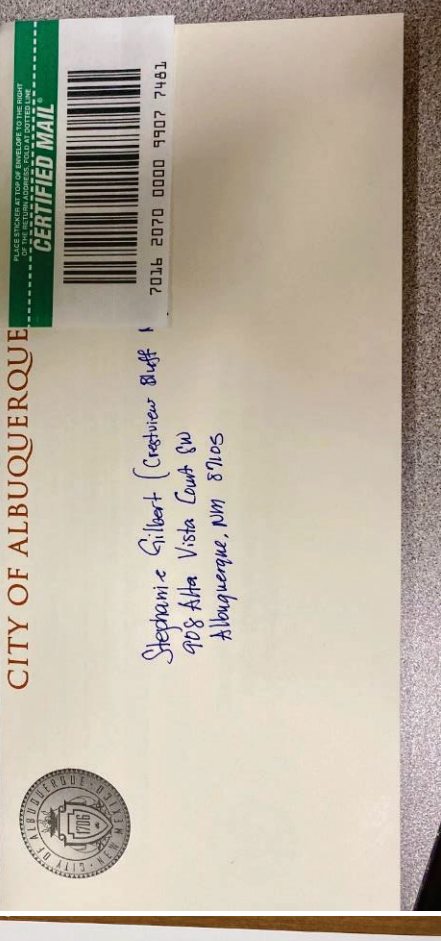 PLACE STICKER AT TOP OF ENVELOPE TO THE RIGHT
OF THE RETURN ADDRESS, FOLD AT DOTTED LINE
CERTIFIED MAIL®
7016 2070 0000 9907 7481
CITY OF ALBUQUERQUE
Stephanie Gilbert (Crestview Bluff
908 Alta Vista Court SW
Albuquerque, NM 87105
CITY OF ALBUQUERQUE · NEW MEXICO
1706